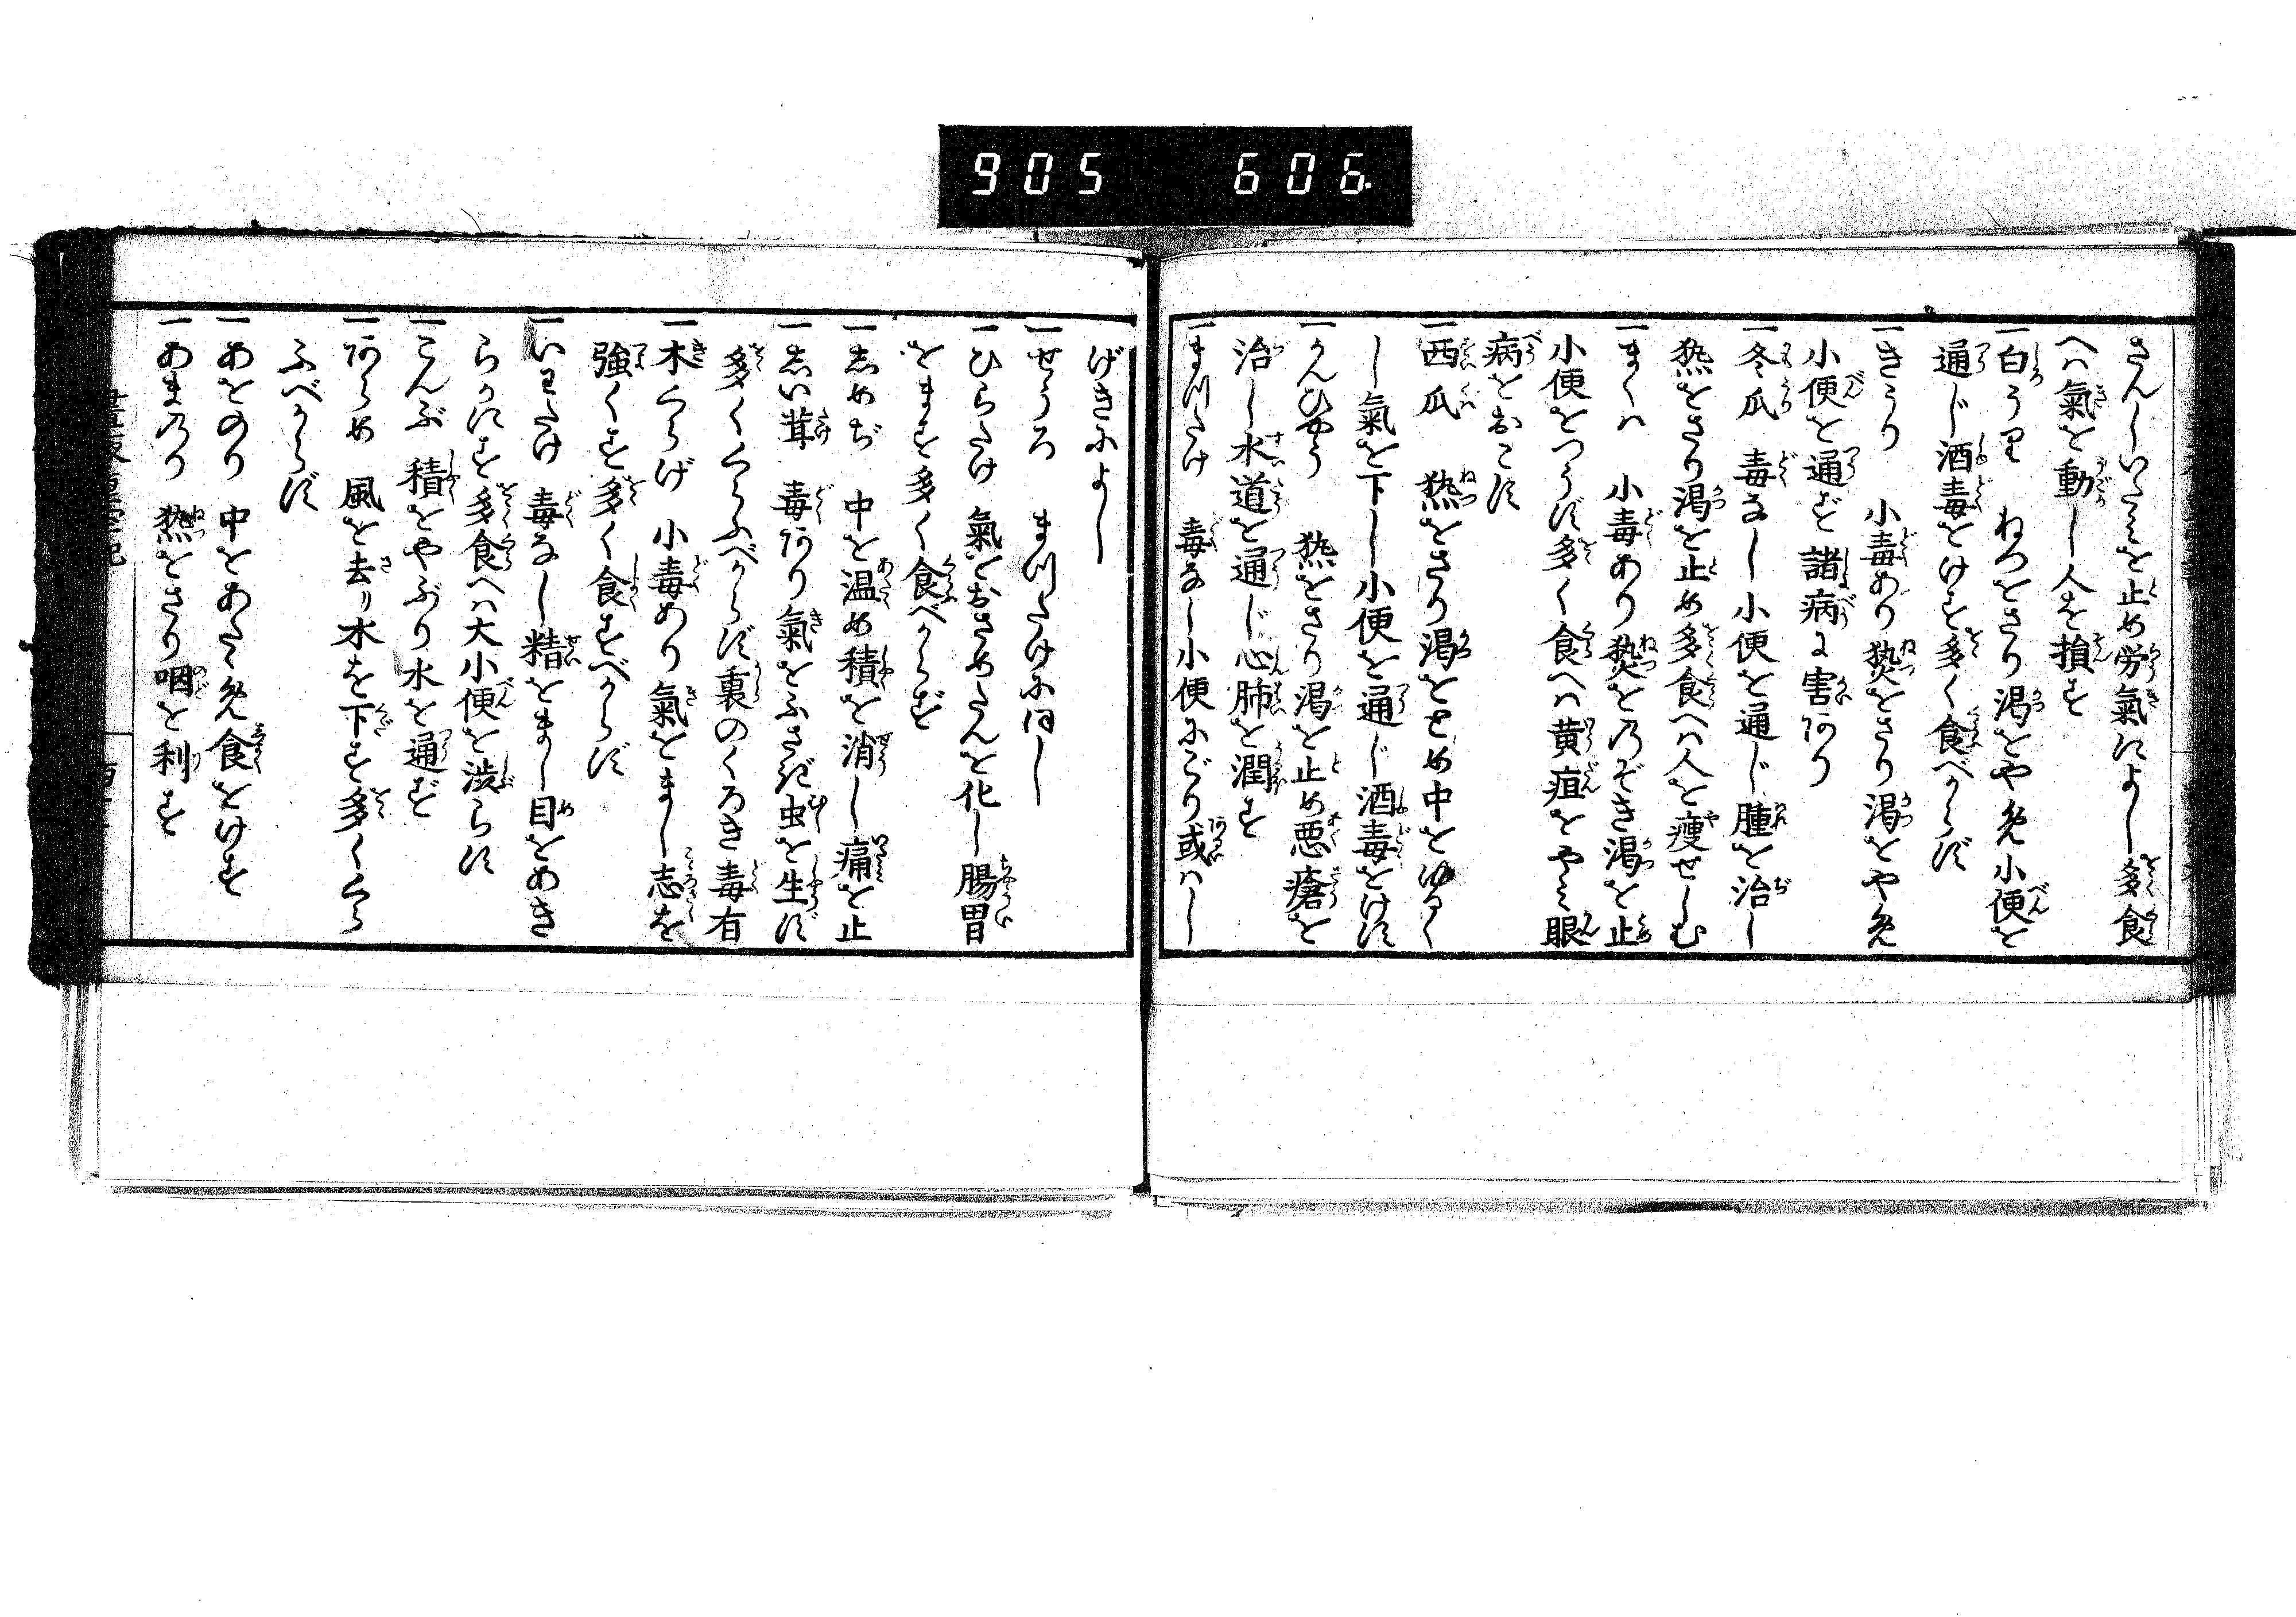 905 606.
さんしいたみを止め労氣によし多食
へハ氣を動し人を損す
一白うり ねつをさり渇をやめ小便を
通じ酒毒をけす多く食べからず
一きうり 小毒あり熱をさり渇をやめ
小便を通ず諸病に害あり
一冬瓜 毒なし小便を通じ腫を治し
熱をさり渇を止め多食へハ人を痩せしむ
一まくハ 小毒あり熱をのぞき渇を止
小便をつうず多く食へハ黄疸をやみ眼
病をおこす
一西瓜 熱をさり渇をとめ中をゆるく
し氣を下し小便を通じ酒毒をけす
一かんひやう 熱をさり渇を止め悪瘡を
治し水道を通じ心肺を潤す
一まつたけ 毒なし小便にごり或ハし
げきによし
一せうろ まつたけに同し
一ひらたけ 氣をおさめたんを化し腸胃
をます多く食べからず
一しめぢ 中を温め積を消し痛を止
一しい茸 毒あり氣をふさぎ虫を生ず
多くくらふべからず裏のくろき毒有
一木くらげ 小毒あり氣をまし志を
強くす多く食すべからず
一いわたけ 毒なし精をまし目をあき
らかにす多食へハ大小便を渋らす
一こんぶ 積をやぶり水を通ず
一あらめ 風を去り水を下す多くくら
ふべからず
一あをのり 中をあたゝめ食をけす
一あまのり 熱をさり咽を利す